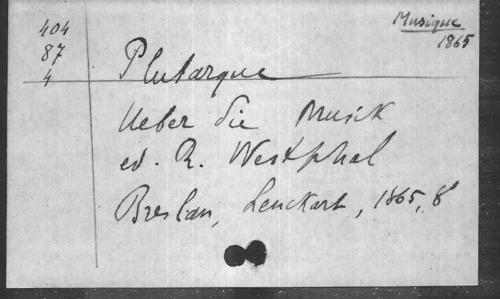 404
87
4
Musique
1865
Plutarque
Ueber die Musik
ed. R. Westphal
Breslau, Leuckart, 1865, 8°